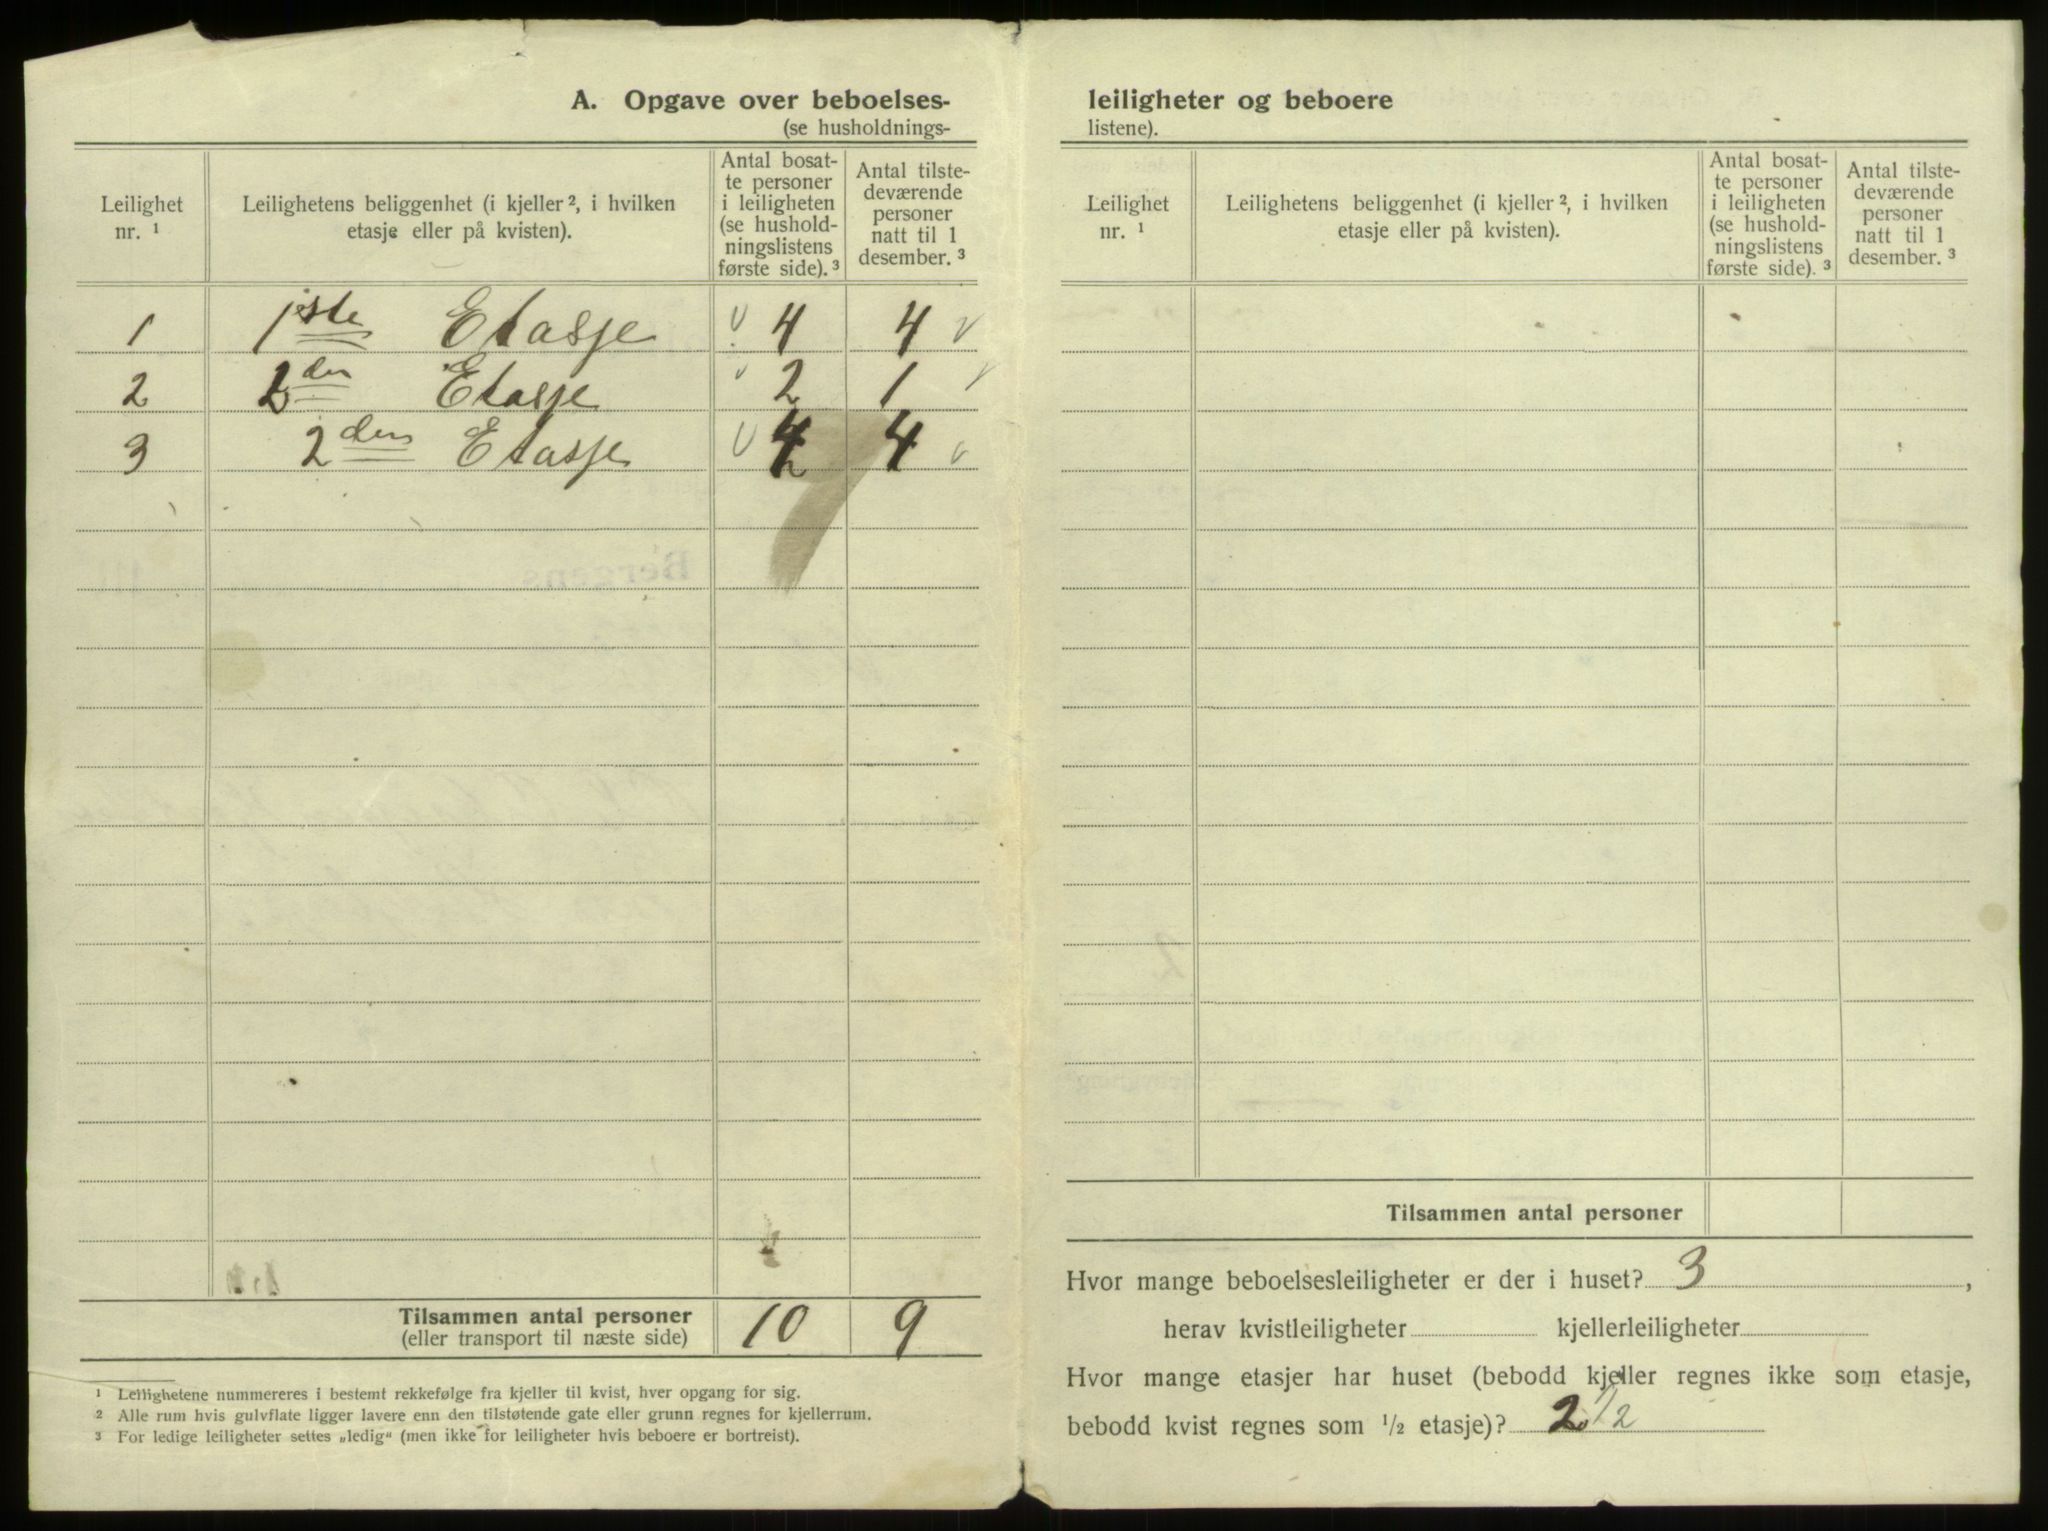 A. Opgave over beboelses-
(se husholdnings-
Leilighet nr. ¹
Leilighetens beliggenhet (i kjeller ², i hvilken
etasje eller på kvisten).
Antal bosat-
te personer
i leiligheten
(se hushold-
ningslistens
første side). ³
Antal tilste-
deværende
personer
natt til 1
desember. ³
1 1ste Etasje 4 4
2 2den Etasje 2 1
3 2den Etasje 4 4
Tilsammen antal personer 10 9
(eller transport til næste side)
¹ Leilighetene nummereres i bestemt rekkefølge fra kjeller til kvist, hver opgang for sig.
² Alle rum hvis gulvflate ligger lavere enn den tilstøtende gate eller grunn regnes for kjellerrum.
³ For ledige leiligheter settes „ledig“ (men ikke for leiligheter hvis beboere er bortreist).
leiligheter og beboere
listene).
Leilighet nr. ¹
Leilighetens beliggenhet (i kjeller ², i hvilken
etasje eller på kvisten).
Antal bosat-
te personer
i leiligheten
(se hushold-
ningslistens
første side). ³
Antal tilste-
deværende
personer
natt til 1
desember. ³
Tilsammen antal personer
Hvor mange beboelsesleiligheter er der i huset? 3,
herav kvistleiligheter kjellerleiligheter
Hvor mange etasjer har huset (bebodd kjeller regnes ikke som etasje,
bebodd kvist regnes som ½ etasje)? 2 1/2